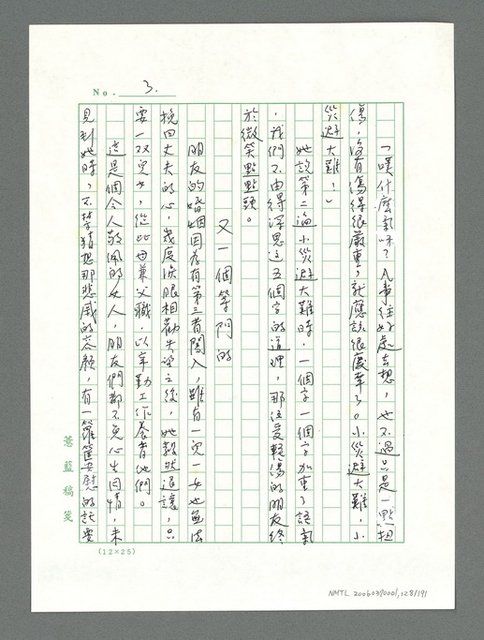 No. 3.
「嘆什麼氣呀?凡事往好處去想,她不過只是一點扭
傷,沒有傷得很嚴重,就應該很慶幸了。小災避大難,小
災避大難!」
她說第二遍小災避大難時,一個字一個字加重了語氣
,我們不由得深思這五個字的道理,那位受輕傷的朋友終
於微笑點點頭。
又一個等門的
朋友的婚姻因為有第三者闖入,雖有一兒一女也無法
挽回丈夫的心,幾度淚眼相勸失望之後,她毅然退讓,只
要一双兒女,從此母兼父職,以辛勤工作養育他們。
這是個令人敬佩的女人,朋友們都不免心生同情,未
見到她時,不禁猜想那悲戚的容顏,有一籮筐安慰的話要
薏藍稿箋
(12×25)
NMTL 20060390001,128/191